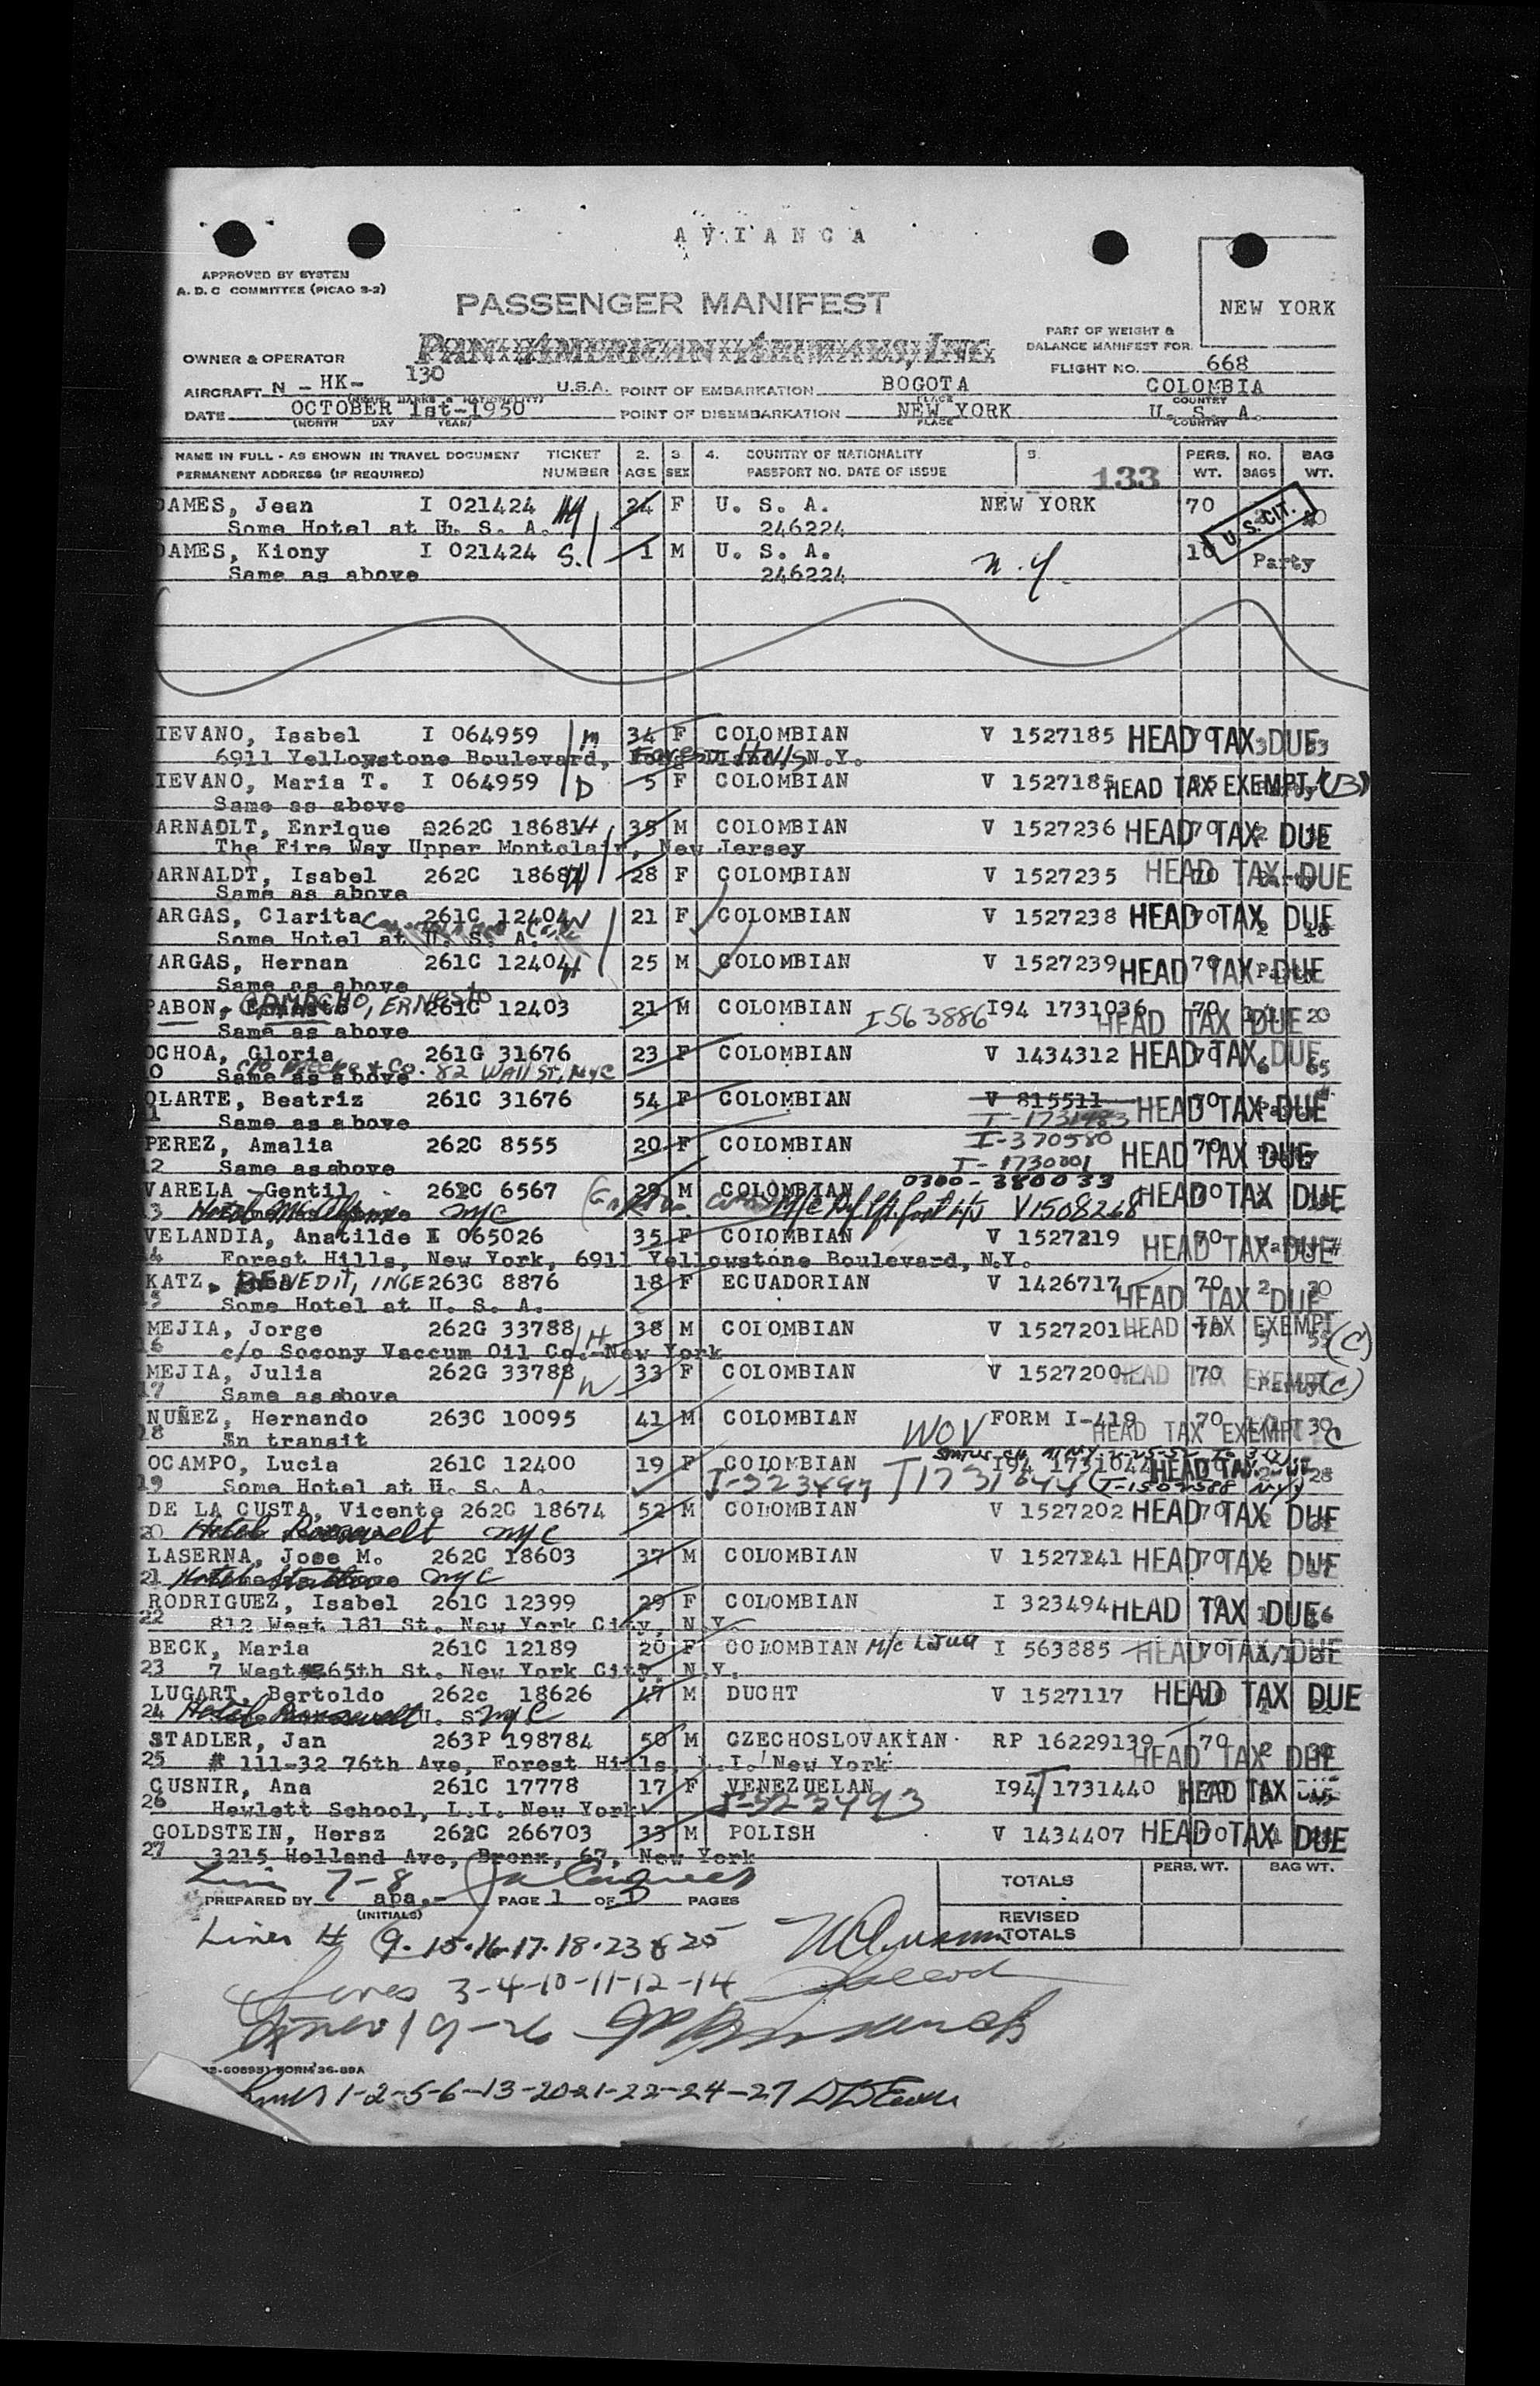 AVIANCA
APPROVED BY SYSTEM
A. D. C COMMITTEE (PICAO S-2)
PASSENGER MANIFEST
NEW YORK
PAN AMERICAN AIRWAYS, INC.
PART OF WEIGHT &
BALANCE MANIFEST FOR
OWNER & OPERATOR
FLIGHT NO. 668
AIRCRAFT N - HK- 130 U.S.A. POINT OF EMBARKATION BOGOTA COLOMBIA
PLACE COUNTRY
DATE OCTOBER 1st-1950 POINT OF DISEMBARKATION NEW YORK U. S. A.
(MONTH DAY YEAR) PLACE COUNTRY
NAME IN FULL - AS SHOWN IN TRAVEL DOCUMENT TICKET 2. 3. 4. COUNTRY OF NATIONALITY 5. PERS. NO. BAG
PERMANENT ADDRESS (IF REQUIRED) NUMBER AGE SEX PASSPORT NO. DATE OF ISSUE 133 WT. BAGS WT.
DAMES, Jean I 021424 24 F U. S. A. NEW YORK 70
Some Hotel at U. S. A. 246224 U. S. CIT.
DAMES, Kiony I 021424 S. 1 M U. S. A. N.Y. 10 Party
Same as above 246224
IEVANO, Isabel I 064959 m 34 F COLOMBIAN V 1527185 HEAD TAX DUE
6911 Yellowstone Boulevard, Forest Hills, N.Y.
IEVANO, Maria T. I 064959 D 5 F COLOMBIAN V 1527185 HEAD TAX EXEMPT (B)
Same as above
ARNAOLT, Enrique 262C 18681 H 35 M COLOMBIAN V 1527236 HEAD TAX DUE
The Fire Way Upper Montclair, New Jersey
ARNALDT, Isabel 262C 18681 W 28 F COLOMBIAN V 1527235 HEAD TAX DUE
Same as above
ARGAS, Clarita 261C 12404 W 21 F COLOMBIAN V 1527238 HEAD TAX DUE
Some Hotel at U. S. A.
ARGAS, Hernan 261C 12404 H 25 M COLOMBIAN V 1527239 HEAD TAX DUE
Same as above
PABON, CAMACHO, ERNESTO 261C 12403 21 M COLOMBIAN I563886 I94 1731036 70 HEAD TAX DUE 20
Same as above
OCHOA, Gloria 261G 31676 23 F COLOMBIAN V 1434312 HEAD TAX DUE 65
10 Same as above & Co. 82 WALL ST. NYC
OLARTE, Beatriz 261C 31676 54 F COLOMBIAN V 815511 HEAD TAX DUE
11 Same as above I-1731483
PEREZ, Amalia 262C 8555 20 F COLOMBIAN I-370580 HEAD TAX DUE
12 Same as above I-1730001
VARELA Gentil 262C 6567 29 M COLOMBIAN 0300-380033 HEAD TAX DUE
13 NYC V1508268
VELANDIA, Anatilde I 065026 35 F COLOMBIAN V 1527219 HEAD TAX DUE
14 Forest Hills, New York, 6911 Yellowstone Boulevard, N.Y.
KATZ, BENEDIT, INGE 263C 8876 18 F ECUADORIAN V 1426717 70 2 HEAD TAX DUE
15 Some Hotel at U. S. A.
MEJIA, Jorge 262G 33788 H 38 M COLOMBIAN V 1527201 HEAD TAX EXEMPT (C)
16 c/o Socony Vaccum Oil Co.-New York
MEJIA, Julia 262G 33788 W 33 F COLOMBIAN V 1527200 70 HEAD TAX EXEMPT Party (C)
17 Same as above
NUÑEZ, Hernando 263C 10095 41 M COLOMBIAN WOV FORM I-419 70 HEAD TAX EXEMPT 30 C
18 In transit
OCAMPO, Lucia 261C 12400 19 F COLOMBIAN I94 HEAD TAX 28
19 Some Hotel at U. S. A. I-323497 I1731044
DE LA CUSTA, Vicente 262C 18674 52 M COLOMBIAN V 1527202 HEAD TAX DUE
20 Hotel Roosevelt NYC
LASERNA, Jose M. 262C 18603 37 M COLOMBIAN V 1527241 HEAD TAX DUE
21 Hotel NYC
RODRIGUEZ, Isabel 261C 12399 29 F COLOMBIAN I 323494 HEAD TAX DUE
22 812 West 181 St. New York City, N.Y.
BECK, Maria 261C 12189 20 F COLOMBIAN I 563885 HEAD TAX DUE
23 7 West 65th St. New York City, N.Y.
LUGART, Bertoldo 262c 18626 47 M DUCHT V 1527117 HEAD TAX DUE
24 Hotel Roosevelt NYC
STADLER, Jan 263P 198784 50 M CZECHOSLOVAKIAN RP 16229139 70 HEAD TAX DUE
25 # 111-32 76th Ave, Forest Hills, L.I. New York
CUSNIR, Ana 261C 17778 17 F VENEZUELAN I94 1731440 HEAD TAX
26 Hewlett School, L.I. New York I-323493
GOLDSTEIN, Hersz 262C 266703 33 M POLISH V 1434407 HEAD TAX DUE
27 3215 Holland Ave, Bronx, 67, New York
7-8
PREPARED BY apa.- PAGE 1 OF 3 PAGES
(INITIALS)
TOTALS PERS. WT. BAG WT.
REVISED TOTALS
Lines 9.15.16.17.18.23 & 25
Lines 3-4-10-11-12-14
Lines 19-26
FORM 36-89A
Lines 1-2-5-6-13-20-21-22-24-27